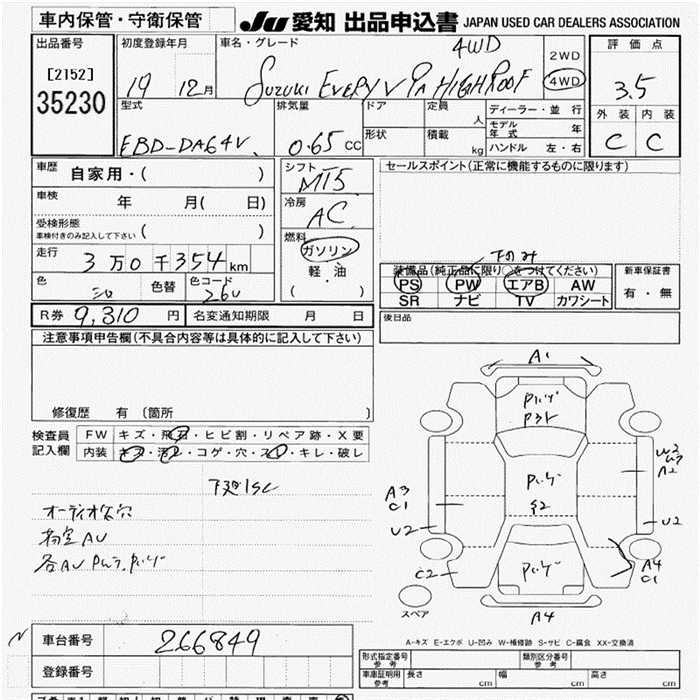 車内保管・守衛保管
JU 愛知 出品申込書 JAPAN USED CAR DEALERS ASSOCIATION
出品番号 初度登録年月 車名・グレード 4WD 2WD 評価点
[2152] 19 12月 SUZUKI EVERY V PA HIGH ROOF 4WD 3.5
35230
型式 排気量 ドア 定員 人 ディーラー・並行 外装 内装
モデル年式 年
EBD-DA64V 0.65 CC 形状 積載 kg ハンドル 左・右 C C
車歴 自家用・( ) シフト MT5 セールスポイント(正常に機能するものに限ります)
車検 年 月( 日) 冷房 AC
受検形態
車検付きのみ記入して下さい ( ) 燃料 ガソリン
走行 3万0千354km 軽・油
装備品(純正品に限り○をつけてください) 新車保証書
色 シロ 色替 色コード 26U ( ) PS PW エアB AW 有・無
SR ナビ TV カワシート
R券 9,310 円 名変通知期限 月 日 後日品
注意事項申告欄(不具合内容等は具体的に記入して下さい)
修復歴 有(箇所 )
検査員 FW キズ・飛石・ヒビ割・リペア跡・X要
記入欄 内装 キズ・汚レ・コゲ・穴・スレ・キレ・破レ
A1
P31
W3
A2
A3
C1
U2
U2
C2
A4
C1
スペア
A4
A-キズ E-エクボ U-凹み W-補修跡 S-サビ C-腐食 XX-交換済
車台番号 266849
登録番号
形式指定番号 参考 類別区分番号 参考
車庫証明用 参考 長さ cm 幅 cm 高さ cm